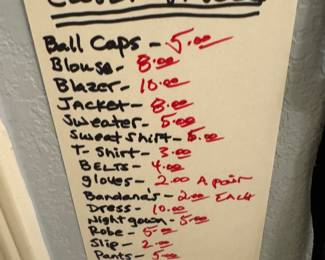 Ball Caps - 5.00
Blouse - 8.00
Blazer - 10.00
Jacket - 8.00
Sweater - 5.00
Sweat Shirt - 5.00
T- Shirt - 3.00
BELTS - 4.00
gloves - 2.00 A pair
Bandana's - 2.00 Each
Dress - 10.00
Nightgown - 5.00
Robe - 5.00
Slip - 2.00
Pants - 5.00